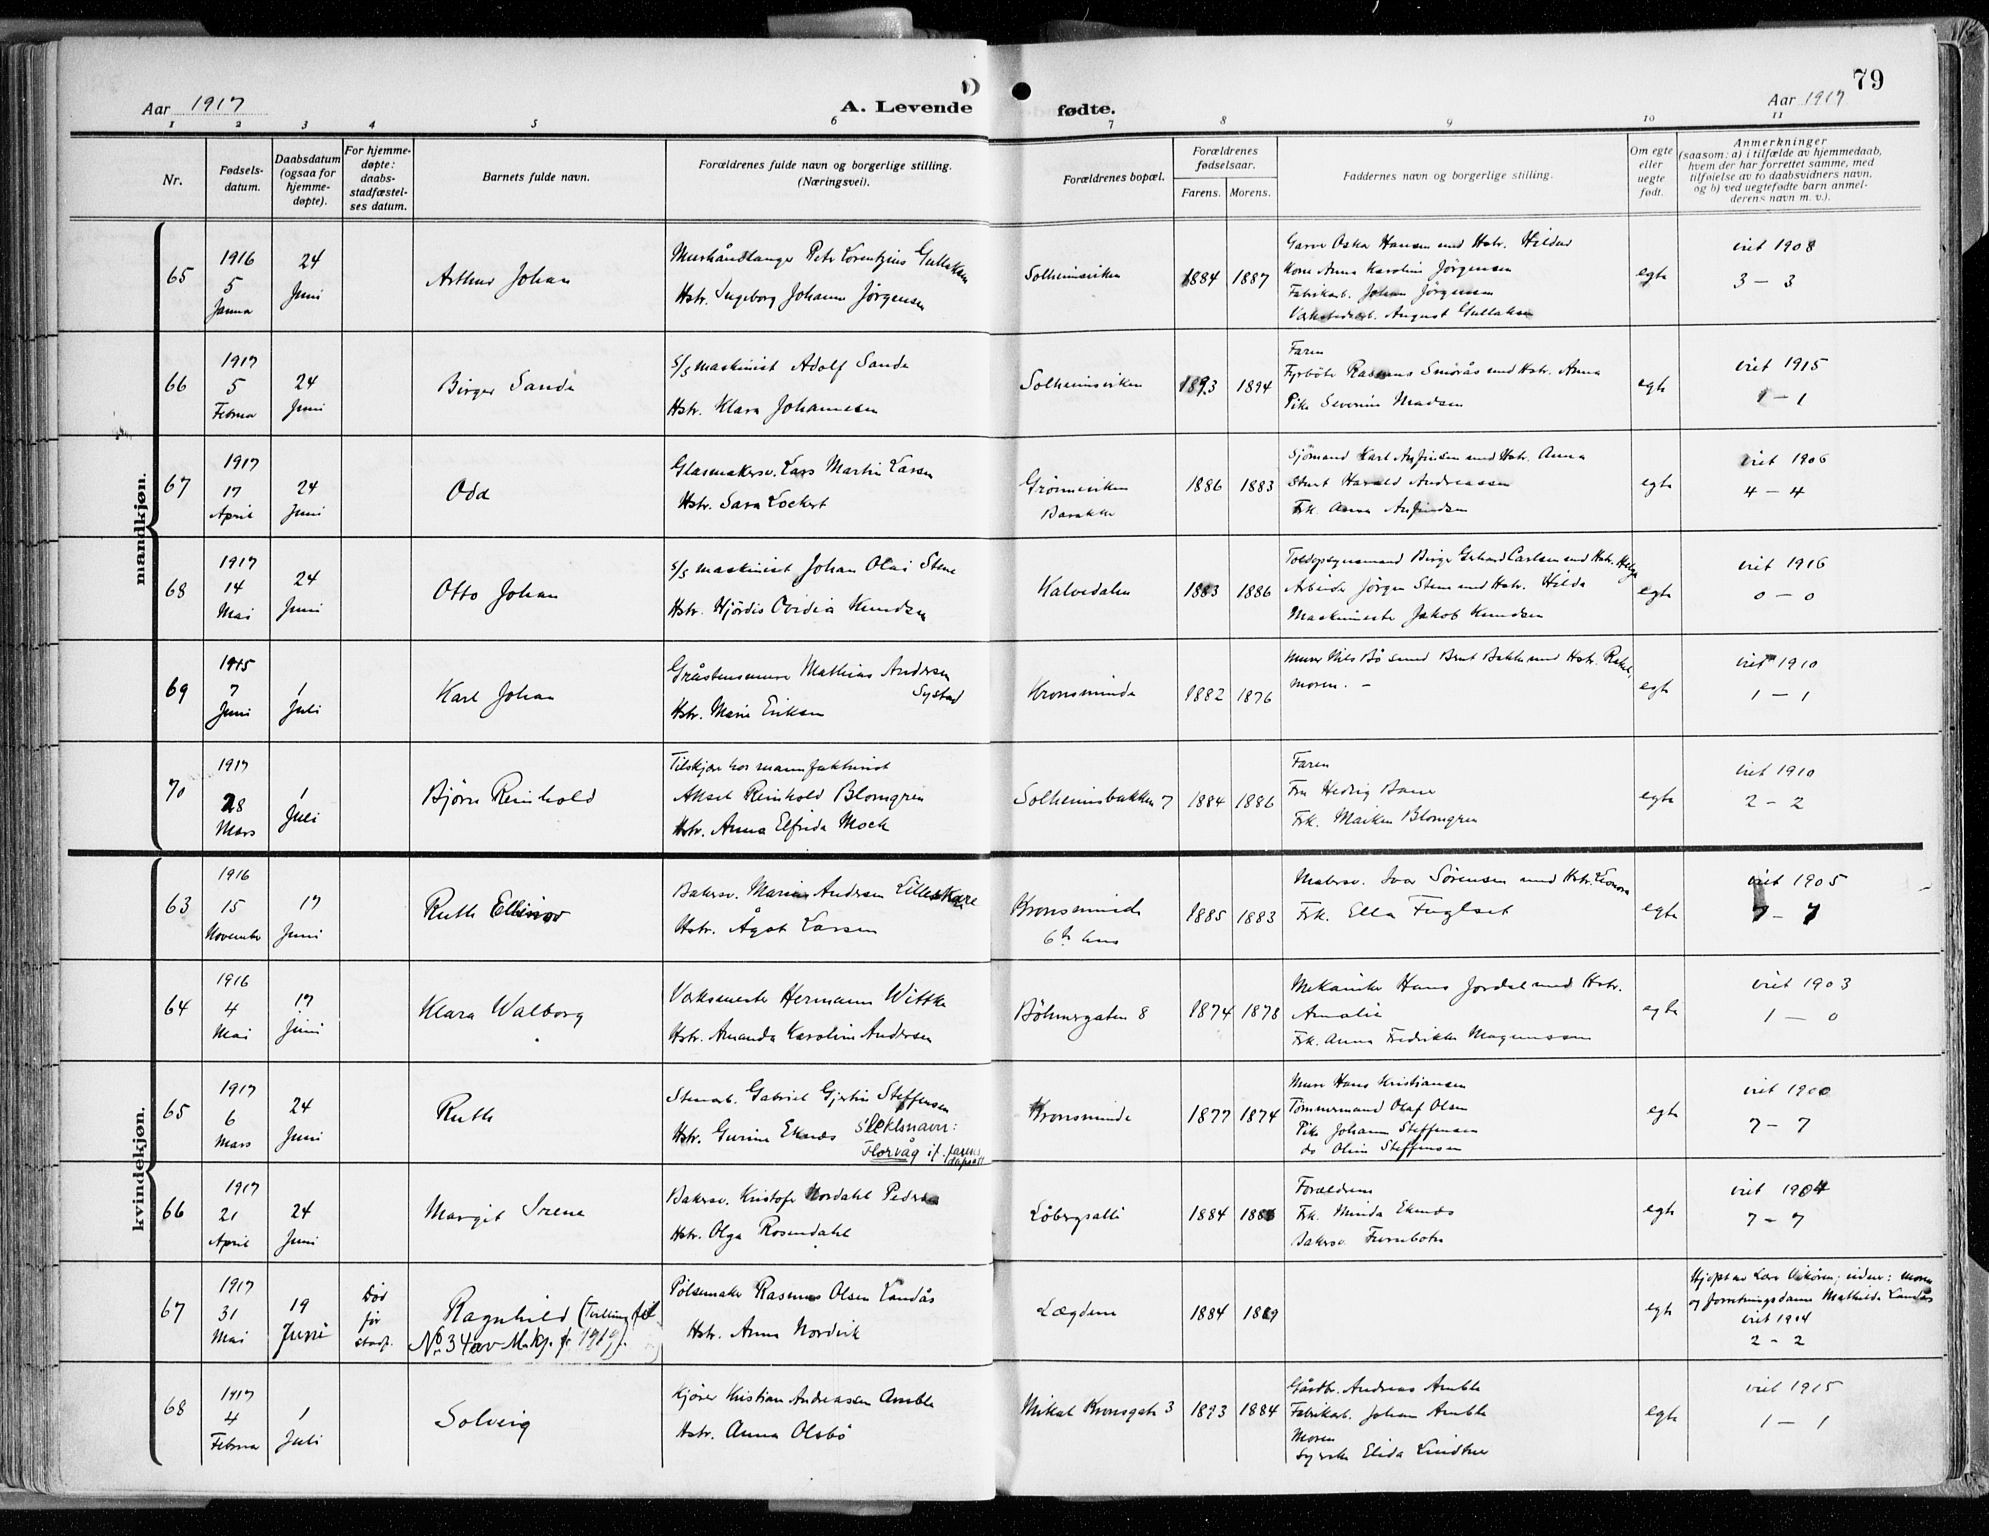 79
Aar 1917 A. Levende fødte. Aar 1917
1 2 3 4 5 6 7 8 9 10 11
Nr.
Fødsels-
datum.
Daabsdatum
(ogsaa for
hjemme-
døpte).
For hjemme-
døpte:
daabs-
stadfæstel-
ses datum.
Barnets fulde navn.
Forældrenes fulde navn og borgerlige stilling.
(Næringsvei).
Forældrenes bopæl.
Forældrenes
fødselsaar.
Farens. Morens.
Faddernes navn og borgerlige stilling.
Om egte
eller
uegte
født.
Anmerkninger
(saasom: a) i tilfælde av hjemmedaab,
hvem der har forrettet samme, med
tilføielse av to daabsvidners navn,
og b) ved uegtefødte barn anmel-
derens navn m. v.).
mandkjøn.
65
1916
5
Janua
24
Juni
Arthur Johan
Murhåndlanger Petr Lorentzius Gullaksen
Hstr. Ingeborg Johanne Jørgensen
Solheimsviken
1884 1887
Garver Oskar Hansen med Hstr. Hilda
Kone Anna Karoline Jørgensen
Fabrikarb. Johan Jørgensen
Verkstedarb. August Gullaksen
egte
viet 1908
3 – 3
66
1917
5
Februa
24
Juni
Birger Sande
s/s maskinist Adolf Sande
Hstr. Klara Johannesen
Solheimsviken
1893 1894
Faren
Fyrbøte Rasmus Smörås med Hstr. Anna
Pike Severine Madsen
egte
viet 1915
1 – 1
67
1917
17
April
24
Juni
Odd
Glasmakersv. Lars Martin Larsen
Hstr. Sara Lockert
Grönneviken
Barakke
1886 1883
Sjömand Karl Anfindsen med Hstr. Anna
Harald Andreassen
Frk. Anna Anfindsen
egte
viet 1906
4 – 4
68
1917
14
Mai
24
Juni
Otto Johan
s/s maskinist Johan Olai Stene
Hstr. Hjördis Ovidia Knudsen
Kalvedalen
1883 1886
Toldopsynsmand Birger Gerhard Carlsen med Hstr. Helga
Arbeider Jörgen Stene med Hstr. Hilda
Maskinist Jakob Knudsen
egte
viet 1916
0 – 0
69
1915
7
Juni
1
Juli
Karl Johan
Gråstensmurer Mathias Andersen
Systad
Hstr. Marie Eriksen
Kronsminde
1882 1876
Murer Nils Bö samt Bernt Bakke med Hstr. Rakel,
moren. –
egte
viet 1910
1 – 1
70
1917
28
Mars
1
Juli
Bjørn Reinhold
Tilskjærer hos manufakturist
Aksel Reinhold Blomgren
Hstr. Anna Elfrida Mock
Solheimsbakken 7
1884 1886
Faren
Fru Hedvig
Frk. Maiken Blomgren
egte
viet 1910
2 – 2
kvindekjøn.
63
1916
15
November
17
Juni
Ruth Ellinor
Bakersv. Marius Andersen Lilleskare
Hstr. Ågot Larsen
Kronsminde
6te hus
1885 1883
Malersv. Ivar Sörensen med Hstr. Leonora
Frk. Ella Fuglset
egte
viet 1905
7 – 7
64
1916
4
Mai
17
Juni
Klara Walborg
Verksmester Hermann Wittke
Hstr. Amanda Karoline Andersen
Böhmergaten 8
1874 1878
Mekaniker Hans Jordal med Hstr.
Amalie
Frk. Anna Fredrikke Magnussen
egte
viet 1903
1 – 0
65
1917
6
Mars
24
Juni
Ruth
Stenarb. Gabriel Gjertin Steffensen
Hstr. Gurine Eknes Slektsnavn:
Florvåg if. farens
dåpsatt.
Kronsminde
1877 1874
Murer Hans Kristiansen
Tömmermand Olaf Olsen
Pike Johanne Steffensen
do Oline Steffensen
egte
viet 1900
7 – 7
66
1917
21
April
24
Juni
Margit Irene
Bakersv. Kristofer Nordahl Pedersen
Hstr. Olga Rosendahl
Löbergsalle
1884
Forældrene
Frk. Minda Eknes
Bakersv. Furnebotn
egte
viet 1904
7 – 7
67
1917
31
Mai
19
Juni
Død
før
stadf.
Ragnhild (Tvilling til
No. 34 av M.kj. fr. 1919).
Pölsemaker Rasmus Olsen Landås
Hstr. Anna Nordvik
Lægdene
1884
egte
Hjdøpt av Lars Vikören; vidner: moren
og forretningsdame Mathilde Landås
viet 1914
2 – 2
68
1917
4
Februa
1
Juli
Solveig
Kjører Kristian Andreassen Amble
Hstr. Anna Olsbö
Mikal Kronsgate 3
1893 1884
Gårdbr. Andreas Amble
Fabrikarb. Johan Amble
Moren
Syerske Elida Lindtner
egte
viet 1915
1 – 1